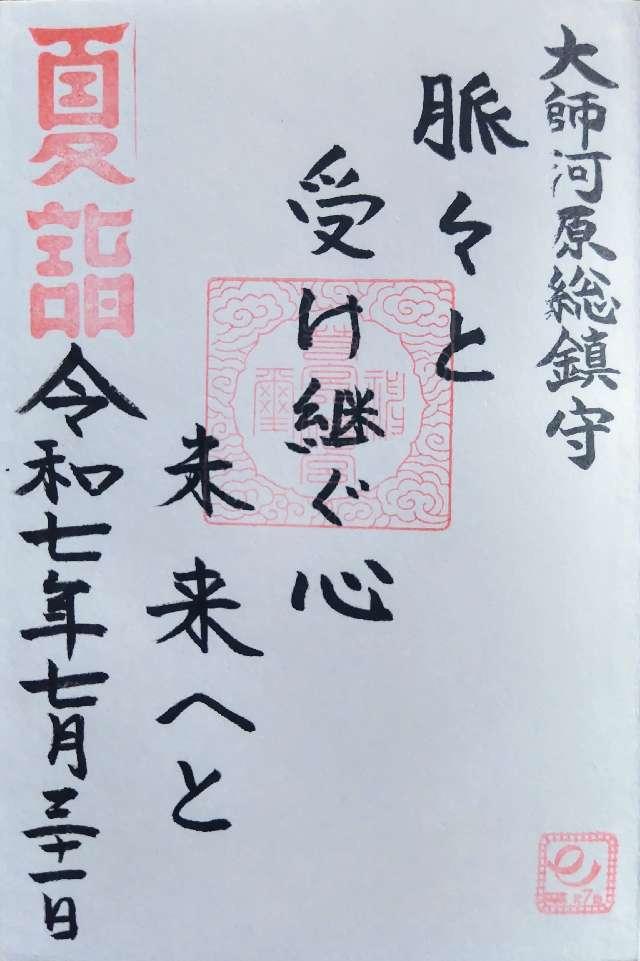 大師河原総鎮守
脈々と
受け継ぐ心
未来へと
夏詣
令和七年七月三十一日